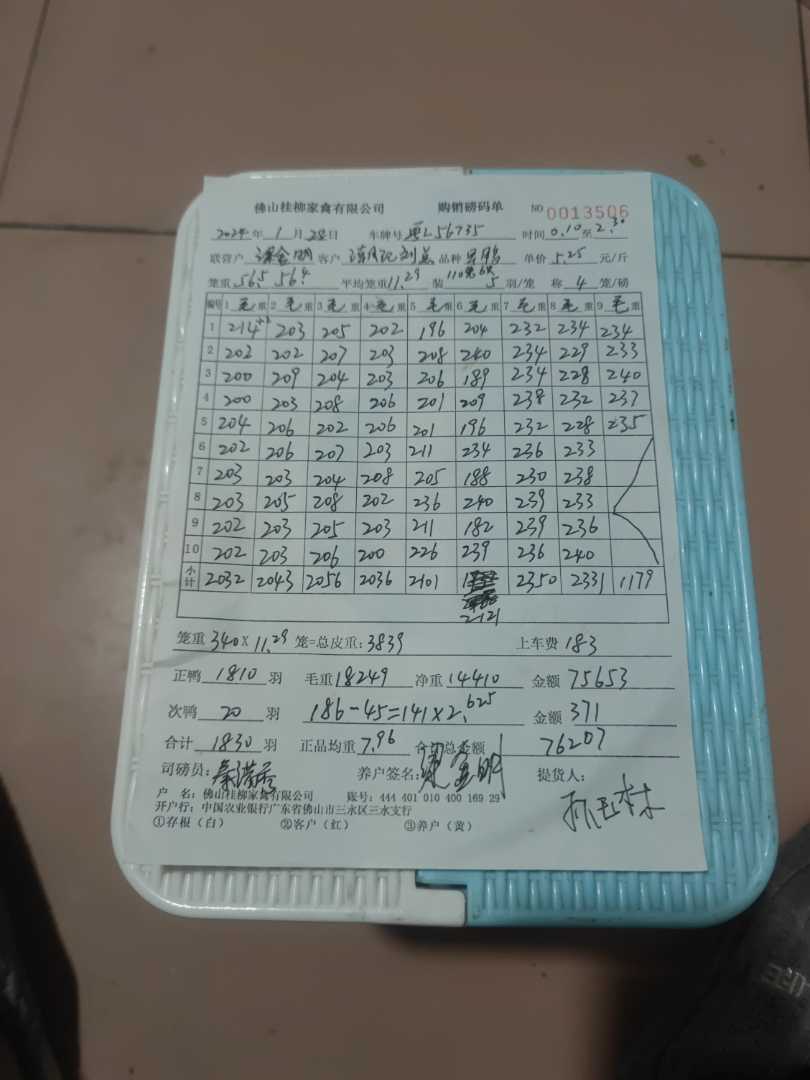 佛山桂柳家禽有限公司 购销磅码单 NO 0013506
2024年 1 月 28日 车牌号 粤L56735 时间 0.10 至 2.30
联营户 客户 品种 单价 5.25 元/斤
笼重 56.5 56.4 平均笼重 11.29 装 5 羽/笼 称 4 笼/磅
编号 1 毛 重 2 毛 重 3 毛 重 4 毛 重 5 毛 重 6 毛 重 7 毛 重 8 毛 重 9 毛 重
1 214 203 205 202 196 204 232 234 234
2 202 202 207 203 208 240 234 229 233
3 200 209 204 203 206 189 234 228 240
4 200 203 208 206 201 209 238 232 237
5 204 206 202 206 201 196 232 228 235
6 202 206 207 203 211 234 236 233
7 203 203 204 208 205 188 230 238
8 203 205 208 202 236 240 239 233
9 202 203 205 203 211 182 239 236
10 202 203 206 200 226 239 236 240
小计 2032 2043 2056 2036 2101 2350 2331 1179
2121
笼重 340×11.29 笼=总皮重:3839 上车费 183
正鸭 1810 羽 毛重 18249 净重 14410 金额 75653
次鸭 20 羽 186-45=141×2.625 金额 371
合计 1830 羽 正品均重 7.96 合计总金额 76207
司磅员: 养户签名: 提货人:
户 名:佛山桂柳家禽有限公司 账号:444 401 010 400 169 29
开户行:中国农业银行广东省佛山市三水区三水支行
①存根(白) ②客户(红) ③养户(黄)